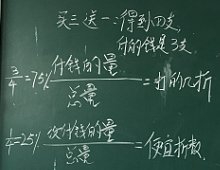 买三送一:得到四支
付的钱是3支
3/4=75% 付钱的量/总量=出的几折
1/4=25% 没付钱的量/总量=便宜折数